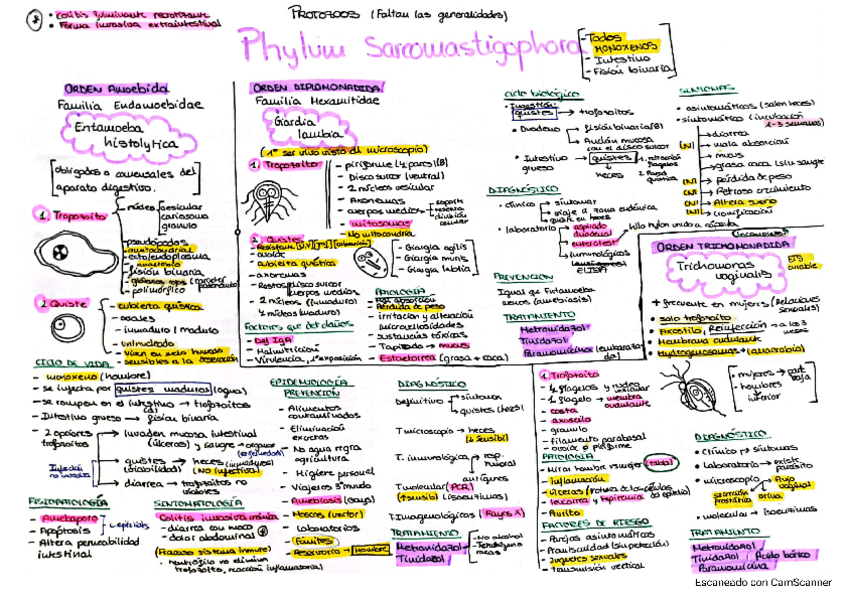 * • Colitis fulminante necrotizante
• Forma invasiva extraintestinal
PROTOZOOS (Faltan las generalidades)
Phylum Sarcomastigophora
- Todos
MONOXENOS
- Intestino
- Fisión binaria
ORDEN Amoebida
Familia Endamoebidae
Entamoeba
histolytica
obligados o comensales del
aparato digestivo.
1 Trofozoito
- núcleo
vesicular
cariosoma
granulo
- pseudópodos
- ecto/endoplasma
- fisión binaria
- polimórfico
2 Quiste
- cubierta quística
- ovales
- inmaduro / maduro
- uninucleado
- Viven en medio húmedo
sensibles a la desecación
CICLO DE VIDA
- monoxeno (hombre)
- se infecta por quistes maduros (agua)
- se rompen en el intestino → trofozoitos
- Intestino grueso → fisión binaria
- 2 opciones
trofozoitos
→ Invaden mucosa intestinal
(úlceras) y sangre → órganos
→ quistes → heces (inmaduros)
(viabilidad) (No infectivo)
→ diarrea → trofozoitos no
viables
FISIOPATOLOGÍA
- Amebaporo
- Apoptosis
- Altera permeabilidad
intestinal
SINTOMATOLOGÍA
Colitis invasiva crónica
- diarrea con moco
- dolor abdominal
(Fracaso sistema inmune)
- neutrófilo no elimina
trofozoito, reacción inflamatoria)
ORDEN DIPLOMONADIDA
Familia Hexamitidae
Giardia
lamblia
(1º ser vivo visto al microscopio)
1. Trofozoito
- piriforme (4 pares (8)
- Disco suctor (ventral)
- 2 núcleos vesicular
- Axonemas
- cuerpos medios
soporte
división
celular
mitosomas
- No mitocondria
2. Quiste
- ovoide
- cubierta quística
- axonemas
- Restos disco suctor
cuerpos medios
- 2 núcleos (inmaduro)
4 núcleos (maduro)
- Giargia agilis
- Giargia muris
- Giargia lablia
Factores que det clínica
- Def IgA
- Malnutrición
- Virulencia, 1ª exposición
PATOLOGÍA
- Mal absorción
- Pérdida de peso
- irritación y alteración
microvellosidades
- sustancias tóxicas
- Tapizado → mucus
- Estadorrea (grasa + caca)
Ciclo biológico
• Ingestión:
quistes → trofozoitos
• Duodeno → fisión binaria (8)
→ Anclan mucosa
con el disco suctor
• Intestino
grueso → quistes
↓
heces
DIAGNÓSTICO
• clínico → síntomas
→ viaje a zona endémica
→ quiste en heces
• laboratorio → aspirado
duodenal
→ enterotest → hilo nylon unido a cápsula
→ inmunológicos
ELISA
PREVENCIÓN
Igual que Entamoeba
(amebiasis)
TRATAMIENTO
Metronidazol
Tinidazol
Paramomicina (embarazada)
SÍNTOMAS
• asintomáticos (salen heces)
• sintomático (incubación
1-3 semanas)
→ diarrea
(N) → mala absorción
→ mucus
→ grasa caca (sin sangre)
(N) → pérdida de peso
(N) → Retraso crecimiento
(N) → Altera sueño
(N) → cronificación
ORDEN TRICHOMONADIDA
Trichomonas
vaginalis
ETS
curable
+ frecuente en mujeres (Relaciones
sexuales)
• solo trofozoito
• Axostilo, Reinfección → a los 3
meses
• Membrana ondulante
• Hydrogenosomas → (anaerobia)
1. Trofozoito
- 4 flagelos y núcleo
vesicular
- 1 flagelo → membra
ondulante
- costa
- axostilo
- granulo
- filamento parabasal
- ovoide o piriforme
• mujeres → parte
baja
• hombres
inferior
PATOLOGÍA
- Mirar hombre vs mujer (tabla)
- inflamación
- úlceras (rotura de las células
del epitelio)
- leucorrea y hiperemia
- Prurito
FACTORES DE RIESGO
- Parejas asintomáticas
- Promiscuidad
- Juguetes sexuales
- Transmisión vertical
DIAGNÓSTICO
• Clínico → síntomas
• Laboratorio → existe
parásito
• microscopio → flujo
vaginal
secreción
prostática orina
• molecular → isoenzimas
TRATAMIENTO
Metronidazol
Tinidazol / Ácido bórico
Paramomicina
EPIDEMIOLOGÍA
PREVENCIÓN
- Alimentos
contaminados
- Eliminación
excretas
- No agua negra
agricultura
- Higiene personal
- Viajeros 3º mundo
- Amebiosis (gays)
- Moscas (vector)
- Laboratorios
- Fómites
- Reservorio → Hombre
DIAGNÓSTICO
Definitivo → síntomas
→ quistes (heces)
T. microscopio → heces
(↓ sensibi)
T. inmunológica → resp
humoral
antígenos
T. molecular (PCR)
(↑ sensibi) (isoenzimas)
T. Imagenológicas (Rayos X)
TRATAMIENTO
Metronidazol
Tinidazol
- No alcohol
Escaneado con CamScanner